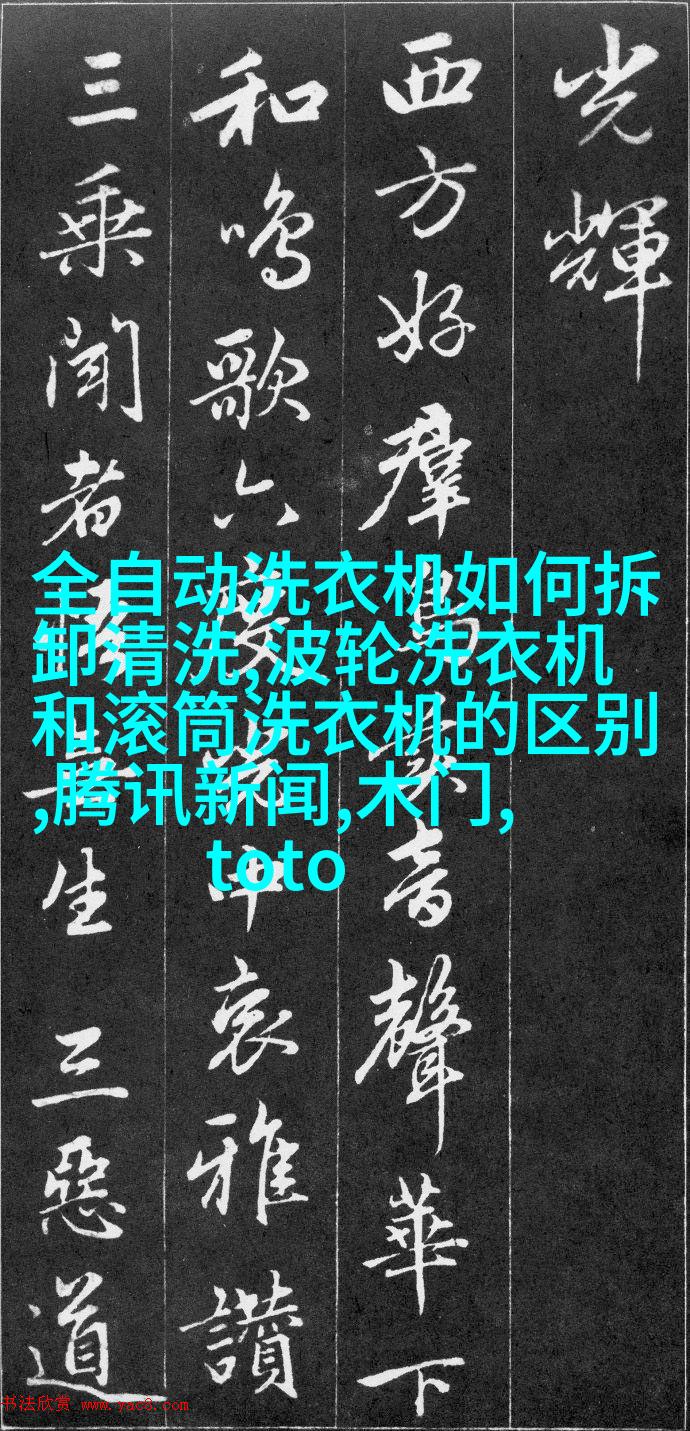 光輝
西方好羣鳥音聲華下
和鳴歌六度中哀雅讚
三乘聞者悟無生 三惡道
全自动洗衣机如何拆
卸清洗,波轮洗衣机
和滚筒洗衣机的区别
,腾讯新闻,木门,
toto
书法欣赏 www.yac8.com